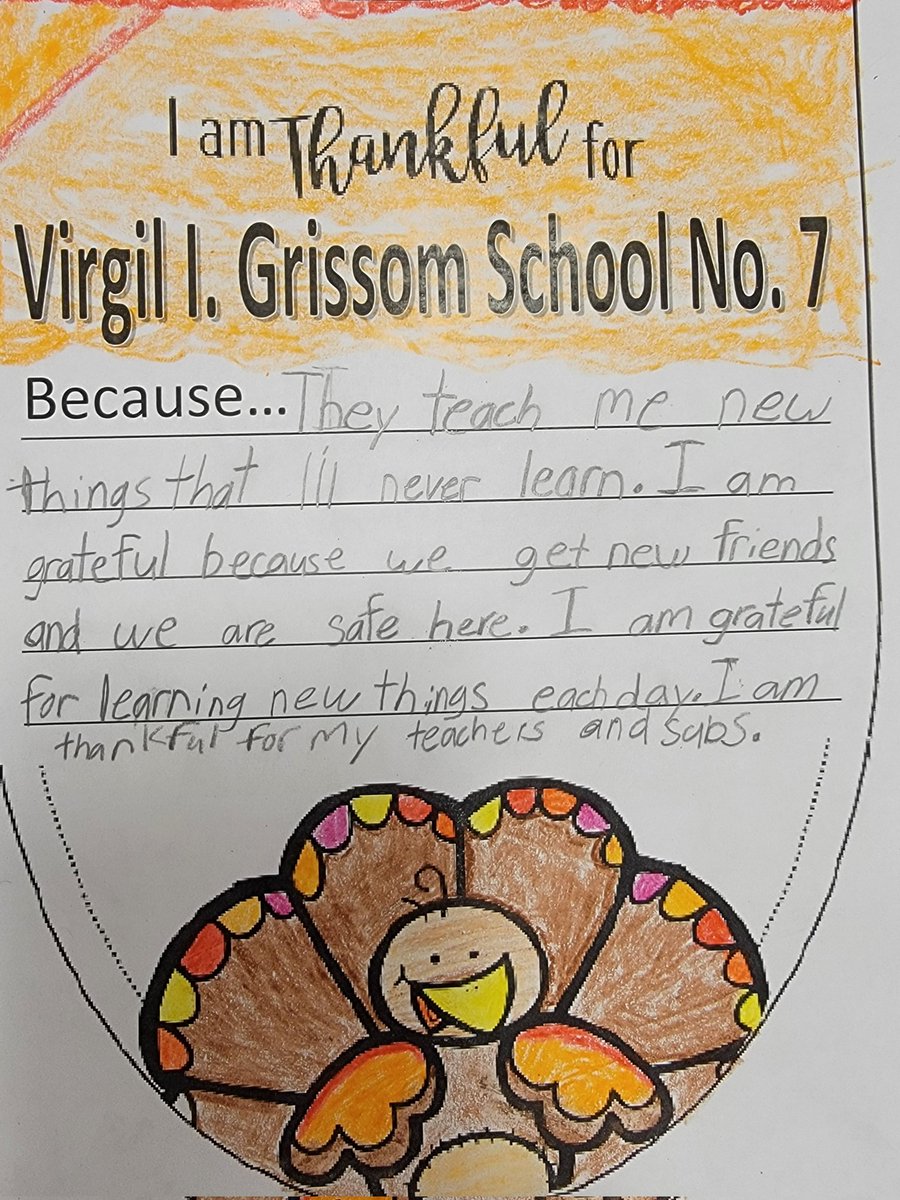 I am Thankful for
Virgil I. Grissom School No. 7
Because... They teach me new
things that I'll never learn. I am
grateful because we get new friends
and we are safe here. I am grateful
for learning new things each day. I am
thankful for my teachers and subs.